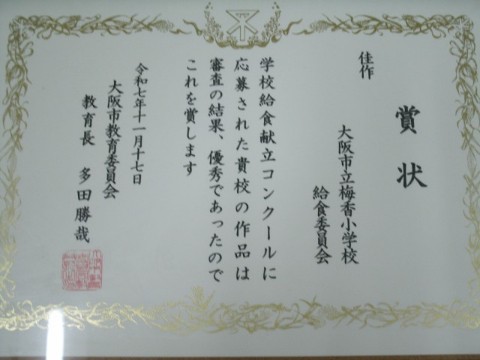 賞状
佳作
大阪市立梅香小学校
給食委員会
学校給食献立コンクールに
応募された貴校の作品は
審査の結果、優秀であったので
これを賞します
令和七年十一月十七日
大阪市教育委員会
教育長 多田勝哉